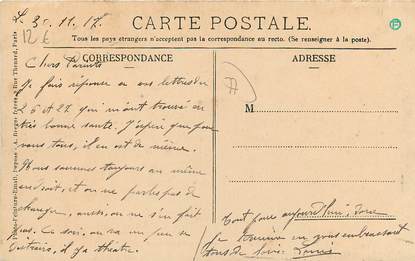 L. 30.11.17.
CARTE POSTALE.
12 €
Tous les pays étrangers n'acceptent pas la correspondance au recto. (Se renseigner à la poste).
CORRESPONDANCE
ADRESSE
Chers Parents
Je fais réponse à vos lettres du
26 et 27 qui m'ont trouvé en
très bonne santé. J'espère que pour
vous tous, il en est de même.
Nous sommes toujours au même
endroit, et on ne parle pas de
changer, aussi, on ne s'en fait
pas. Ce soir, on va un peu se
distraire, il y a théâtre.
M
Tout pour aujourd'hui, donc
je termine en vous embrassant
tous de loin. Louis